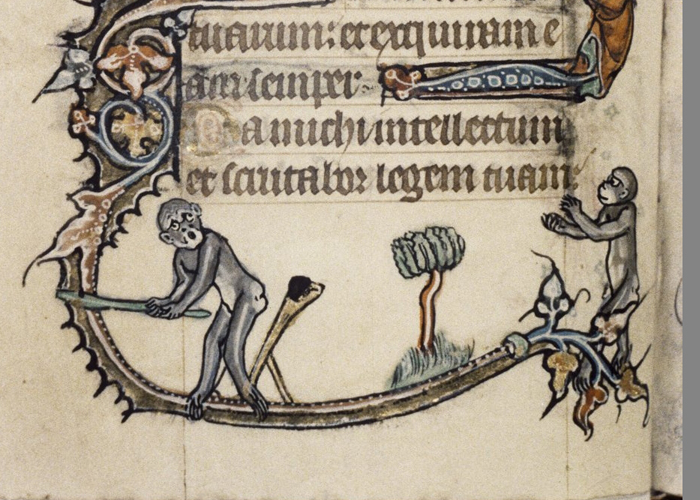 tuarum: et exquiram e
am semper
Da michi intellectum
et scrutabor legem tuam: